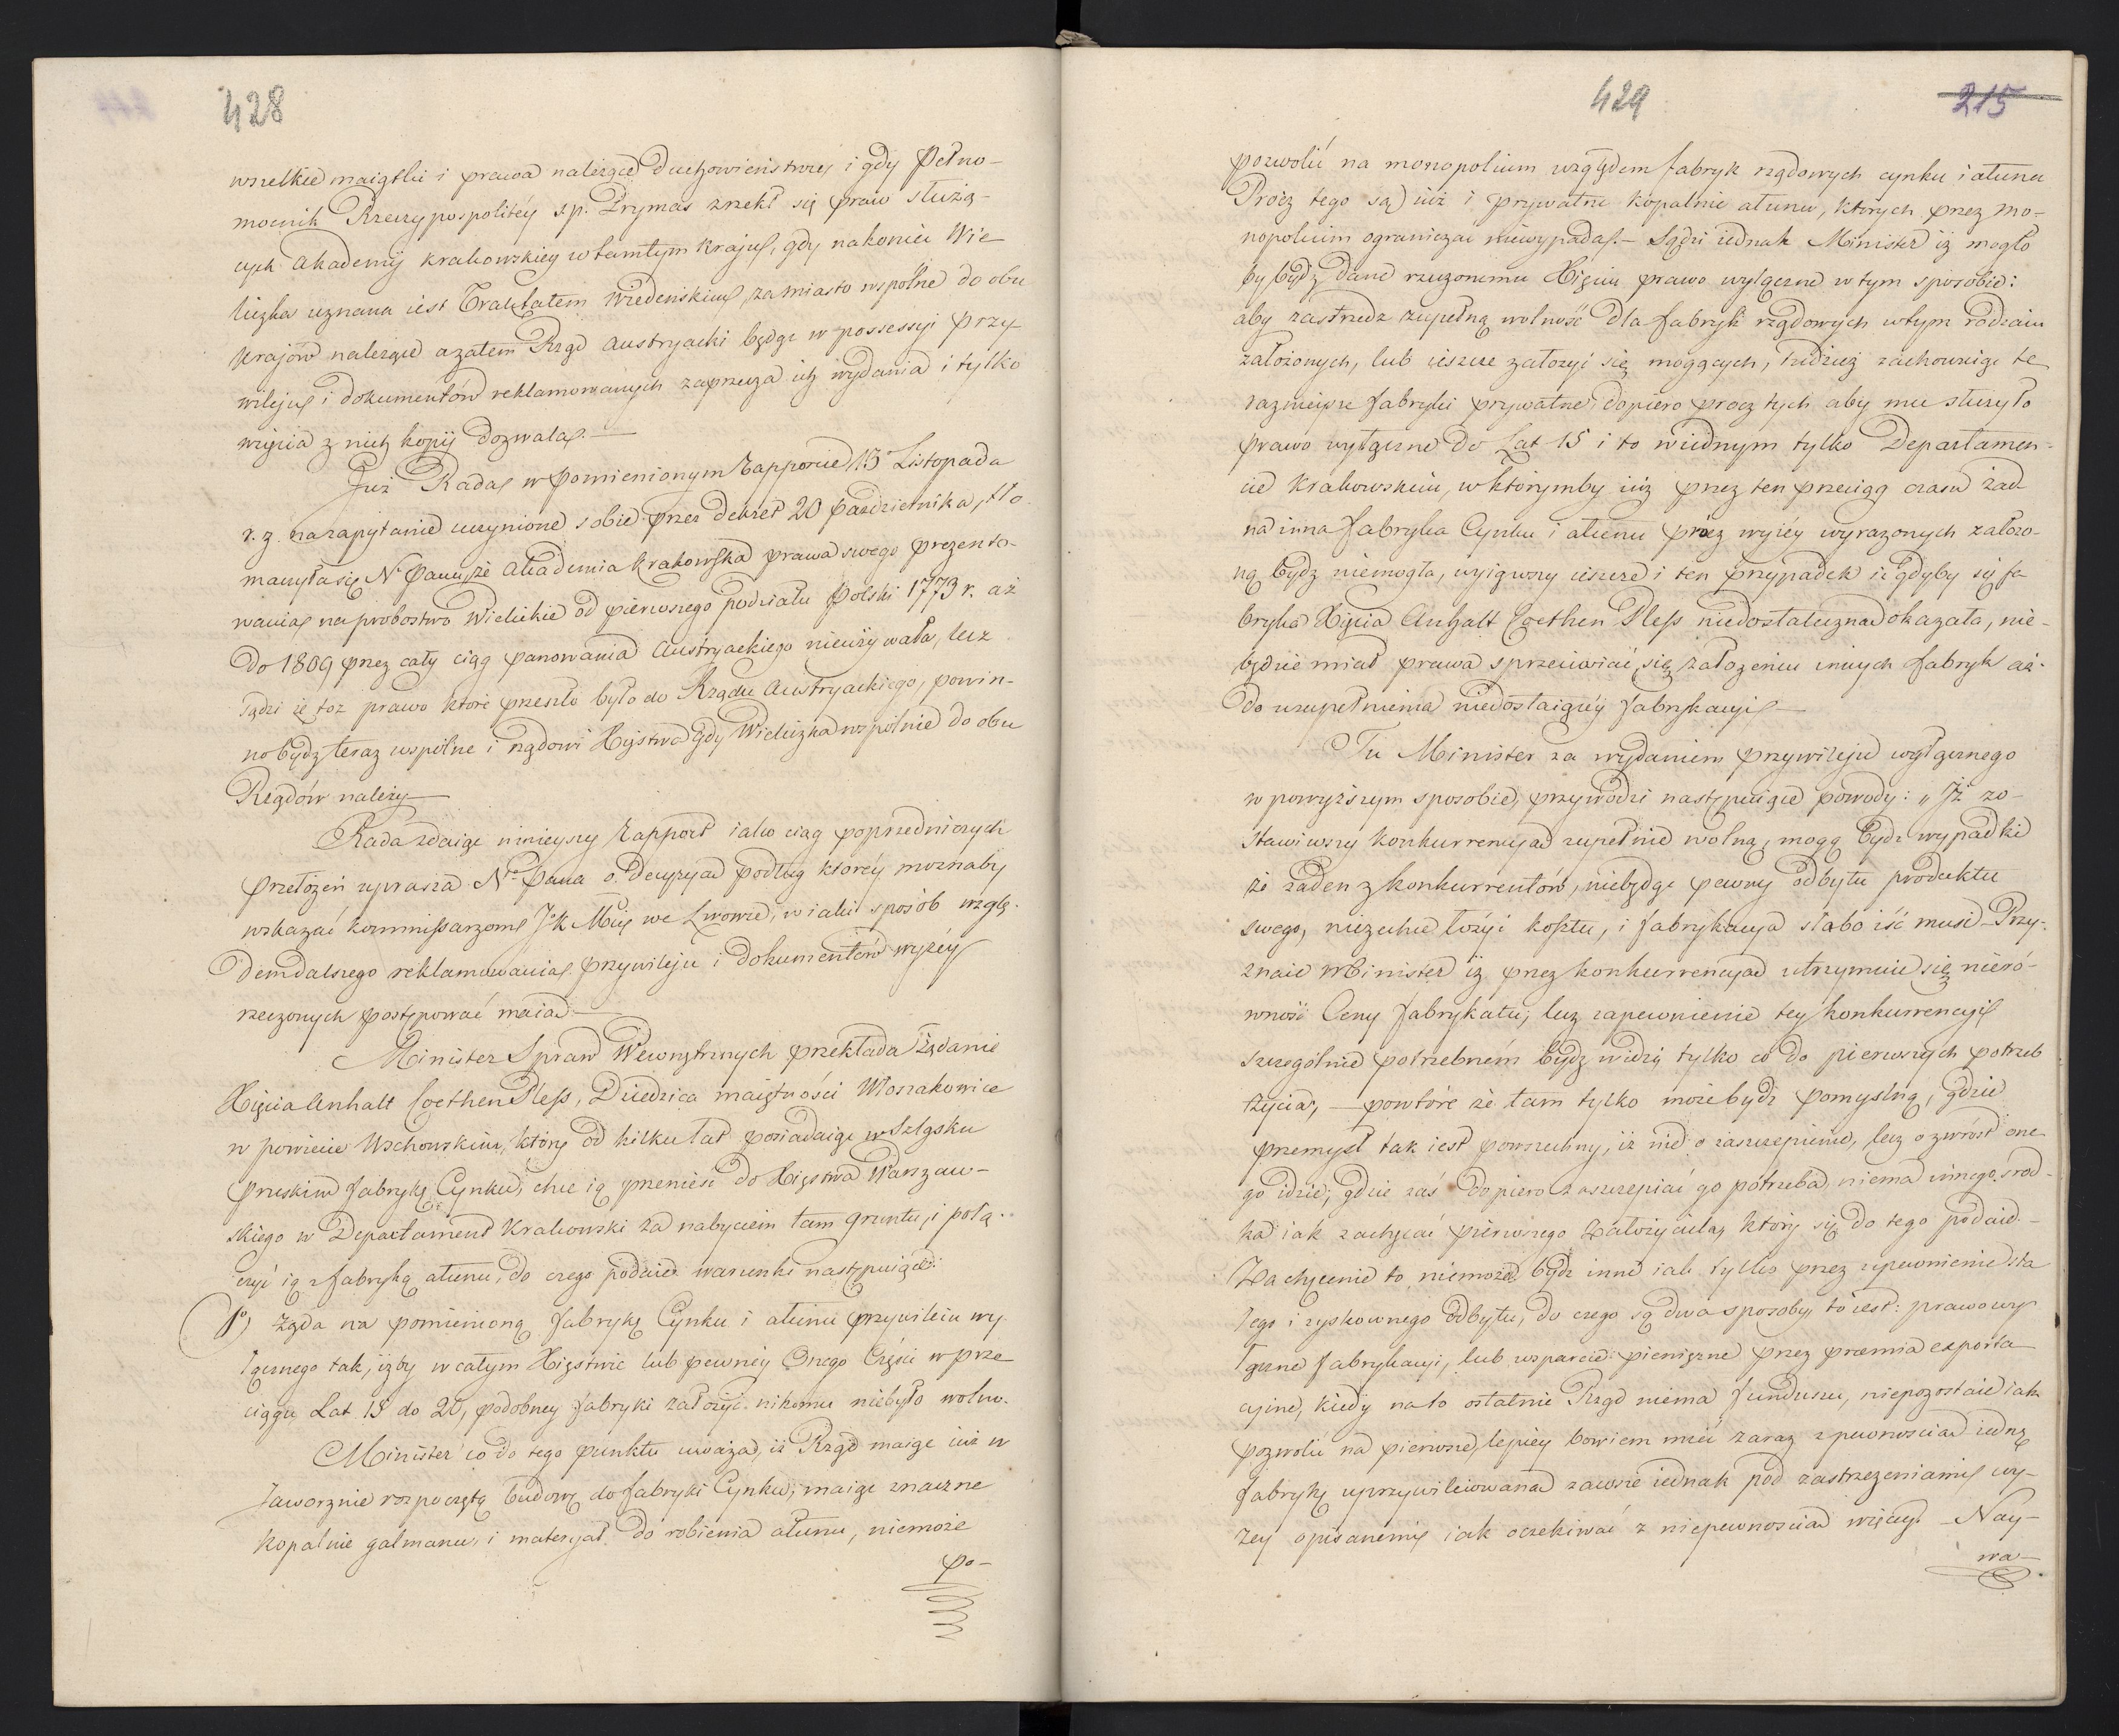 428
wszelkie maiątki i prawa należące Duchowieństwu i gdy Pełno-
mocnik Rzeczypospolitéy xp. Prymas zrzekł się praw służą-
cych Akademij krakowskiey w tamtym kraju, gdy nakoniec Wie
liczka uznana iest Traktatem Wiedeńskim, za miasto wspólne do obu
krajów należące a zatem Rząd austryacki będąc w possessyi przy
wileju i dokumentów reklamowanych zaprzecza ich wydania i tylko
wzięcia z nich kopij dozwala.—
Już Rada w pomienionym Rapporcie 13 Listopada
r. z. na zapytanie uczynione sobie przez dekret 20 Października, tło
maczyła się N. Panu, że Akademia Krakowska prawa swego prezento-
wania na probostwo Wielickie od pierwszego podziału Polski 1773 r. aż
do 1809 przez cały ciąg panowania Austryackiego nieużywała, lecz
sądzi iż toż prawo które przeszło było do Rządu Austryackiego, powin-
no bydź teraz wspólne i rządowi Xięstwa gdy Wieliczka wspólnie do obu
Rządów należy—
Rada zdaiąc ninieyszy Rapport iako ciąg poprzedniczych
przełożeń uprasza Nº Pana o decyzyą podług któréy możnaby
wskazać kommissarzom JK Mci we Lwowie, w iaki sposób wzglę-
dem dalszego reklamowania przywileju i dokumentów wyżéy
rzeczonych postępować maią.—
Minister Spraw Wewnętrznych przekłada żądanie
Xięcia Anhalt Coethen Pless, Dziedzica maiętności Włoszakowice
w powiecie Wschowskim, który od kilku lat posiadaiąc w Szląsku
pruskim fabrykę Cynku, chce ią przenieść do Xięstwa Warszaw-
skiego w Departament Krakowski za nabyciem tam gruntu, i połą-
czyć ią z fabryką ałunu, do czego podaie warunki następuiące:
1º, Żąda na pomienioną fabrykę Cynku i ałunu przywileiu wy
łącznego tak, iżby w całym Xięstwie lub pewnéy Onego Części w prze
ciągu Lat 15 do 20, podobney fabryki założyć nikomu niebyło wolno.
Minister co do tego punktu uważa, iż Rząd maiąc iuż w
Jaworznie rozpoczętą budowę do fabryki Cynku, maiąc znaczne
kopalnie galmanu, i materyał do robienia ałunu, niemoże
po-
429
215
pozwolić na monopolium względem fabryk rządowych cynku i ałunu
Prócz tego są iuż i prywatne kopalnie ałunu, których przez mo-
nopolium ograniczać niewypada.— Sądzi iednak Minister iż mogło
by bydź dane rzeczonemu Xięciu prawo wyłączne w tym sposobie:
aby zastrzedz zupełną wolność dla fabryk rządowych w tym rodzaiu
założonych, lub ieszcze założyć się mogących, tudzież zachowuiąc te
raznieysze fabryki prywatne, dopiero prócz tych aby mu służyło
prawo wyłączne do Lat 15 i to w iednym tylko Departamen-
cie Krakowskim, w którymby iuż przez ten przeciąg czasu żad-
na inna fabryka Cynku i ałunu prócz wyżéy wyrażonych założo-
ną bydź niemogła, wyiąwszy ieszcze i ten przypadek iż gdyby się fa
bryka Xięcia Anhalt Coethen Pless niedostateczna okazała, nie-
będzie miał prawa sprzeciwiać się założeniu innych fabryk aż
do uzupełnienia niedostaiącéy fabrykacyi—
Tu Minister za wydaniem przywileju wyłącznego
w powyższym sposobie, przywodzi następuiące powody: „Iż zo-
stawiwszy konkurrencyą zupełnie wolną, mogą bydź wypadki
że żaden z konkurrentów, niebędąc pewny odbytu produktu
swego, niezechce łożyć kosztu, i fabrykacya słabo iść musi— Przy-
znaie Minister iż przez konkurrencyą utrzymuie się nieró-
wność Ceny fabrykatu, lecz zapewnienie tey konkurrencyi
szczególnie potrzebném bydź widzi tylko co do pierwszych potrzeb
życia, — powtóre że tam tylko może bydź pomyślną, gdzie
przemysł tak iest powszechny, iż nie o zaszczepienie, lecz o zwrost one
go idzie; gdzie zaś dopiero zaszczepiać go potrzeba, niema innego środ-
ka iak zachęcać pierwszego założyciela, który się do tego podaie.—
Zachęcenie to niemoże bydź inne iak tylko przez upewnienie sta
łego i zyskownego odbytu, do czego są dwa sposoby, to iest: prawo wy
łączne fabrykacyi, lub wsparcie pieniężne przez præmia exporta
cyine, kiedy na to ostatnie Rząd niema funduszu, niepozostaie iak
pozwolić na pierwsze, lepiéy bowiem mieć zaraz z pewnością iedną
fabrykę uprzywileiowaną zawsze iednak pod zastrzeżeniami wy-
żey opisanemi, iak oczekiwać z niepewnością więcéy.— Nay-
wa-